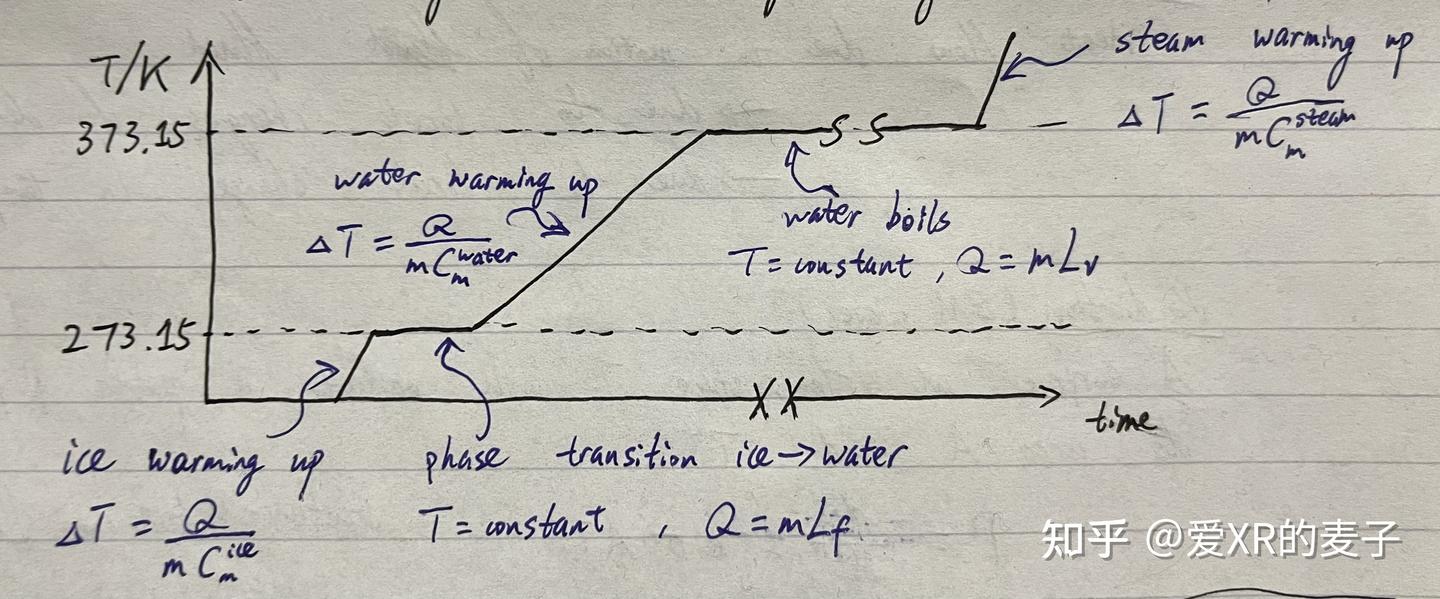 T/K
steam warming up
ΔT = Q / m C_m^steam
373.15
water warming up
ΔT = Q / m C_m^water
water boils
T = constant , Q = mLv
273.15
time
ice warming up
ΔT = Q / m C_m^ice
phase transition ice → water
T = constant , Q = mLf
知乎 @爱XR的麦子